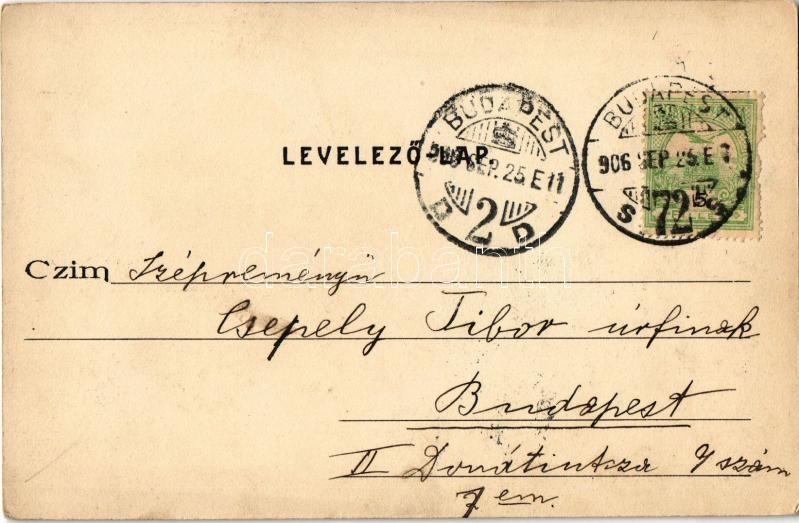 BUDAPEST
906 SEP. 25. E 11
2
BUDAPEST
906 SEP 25. E
S 72 S
LEVELEZŐ-LAP.
darabanth
Czim Szépreményű
Csepely Tibor úrfinak
Budapest
II Donátiutcza 7 szám
em.